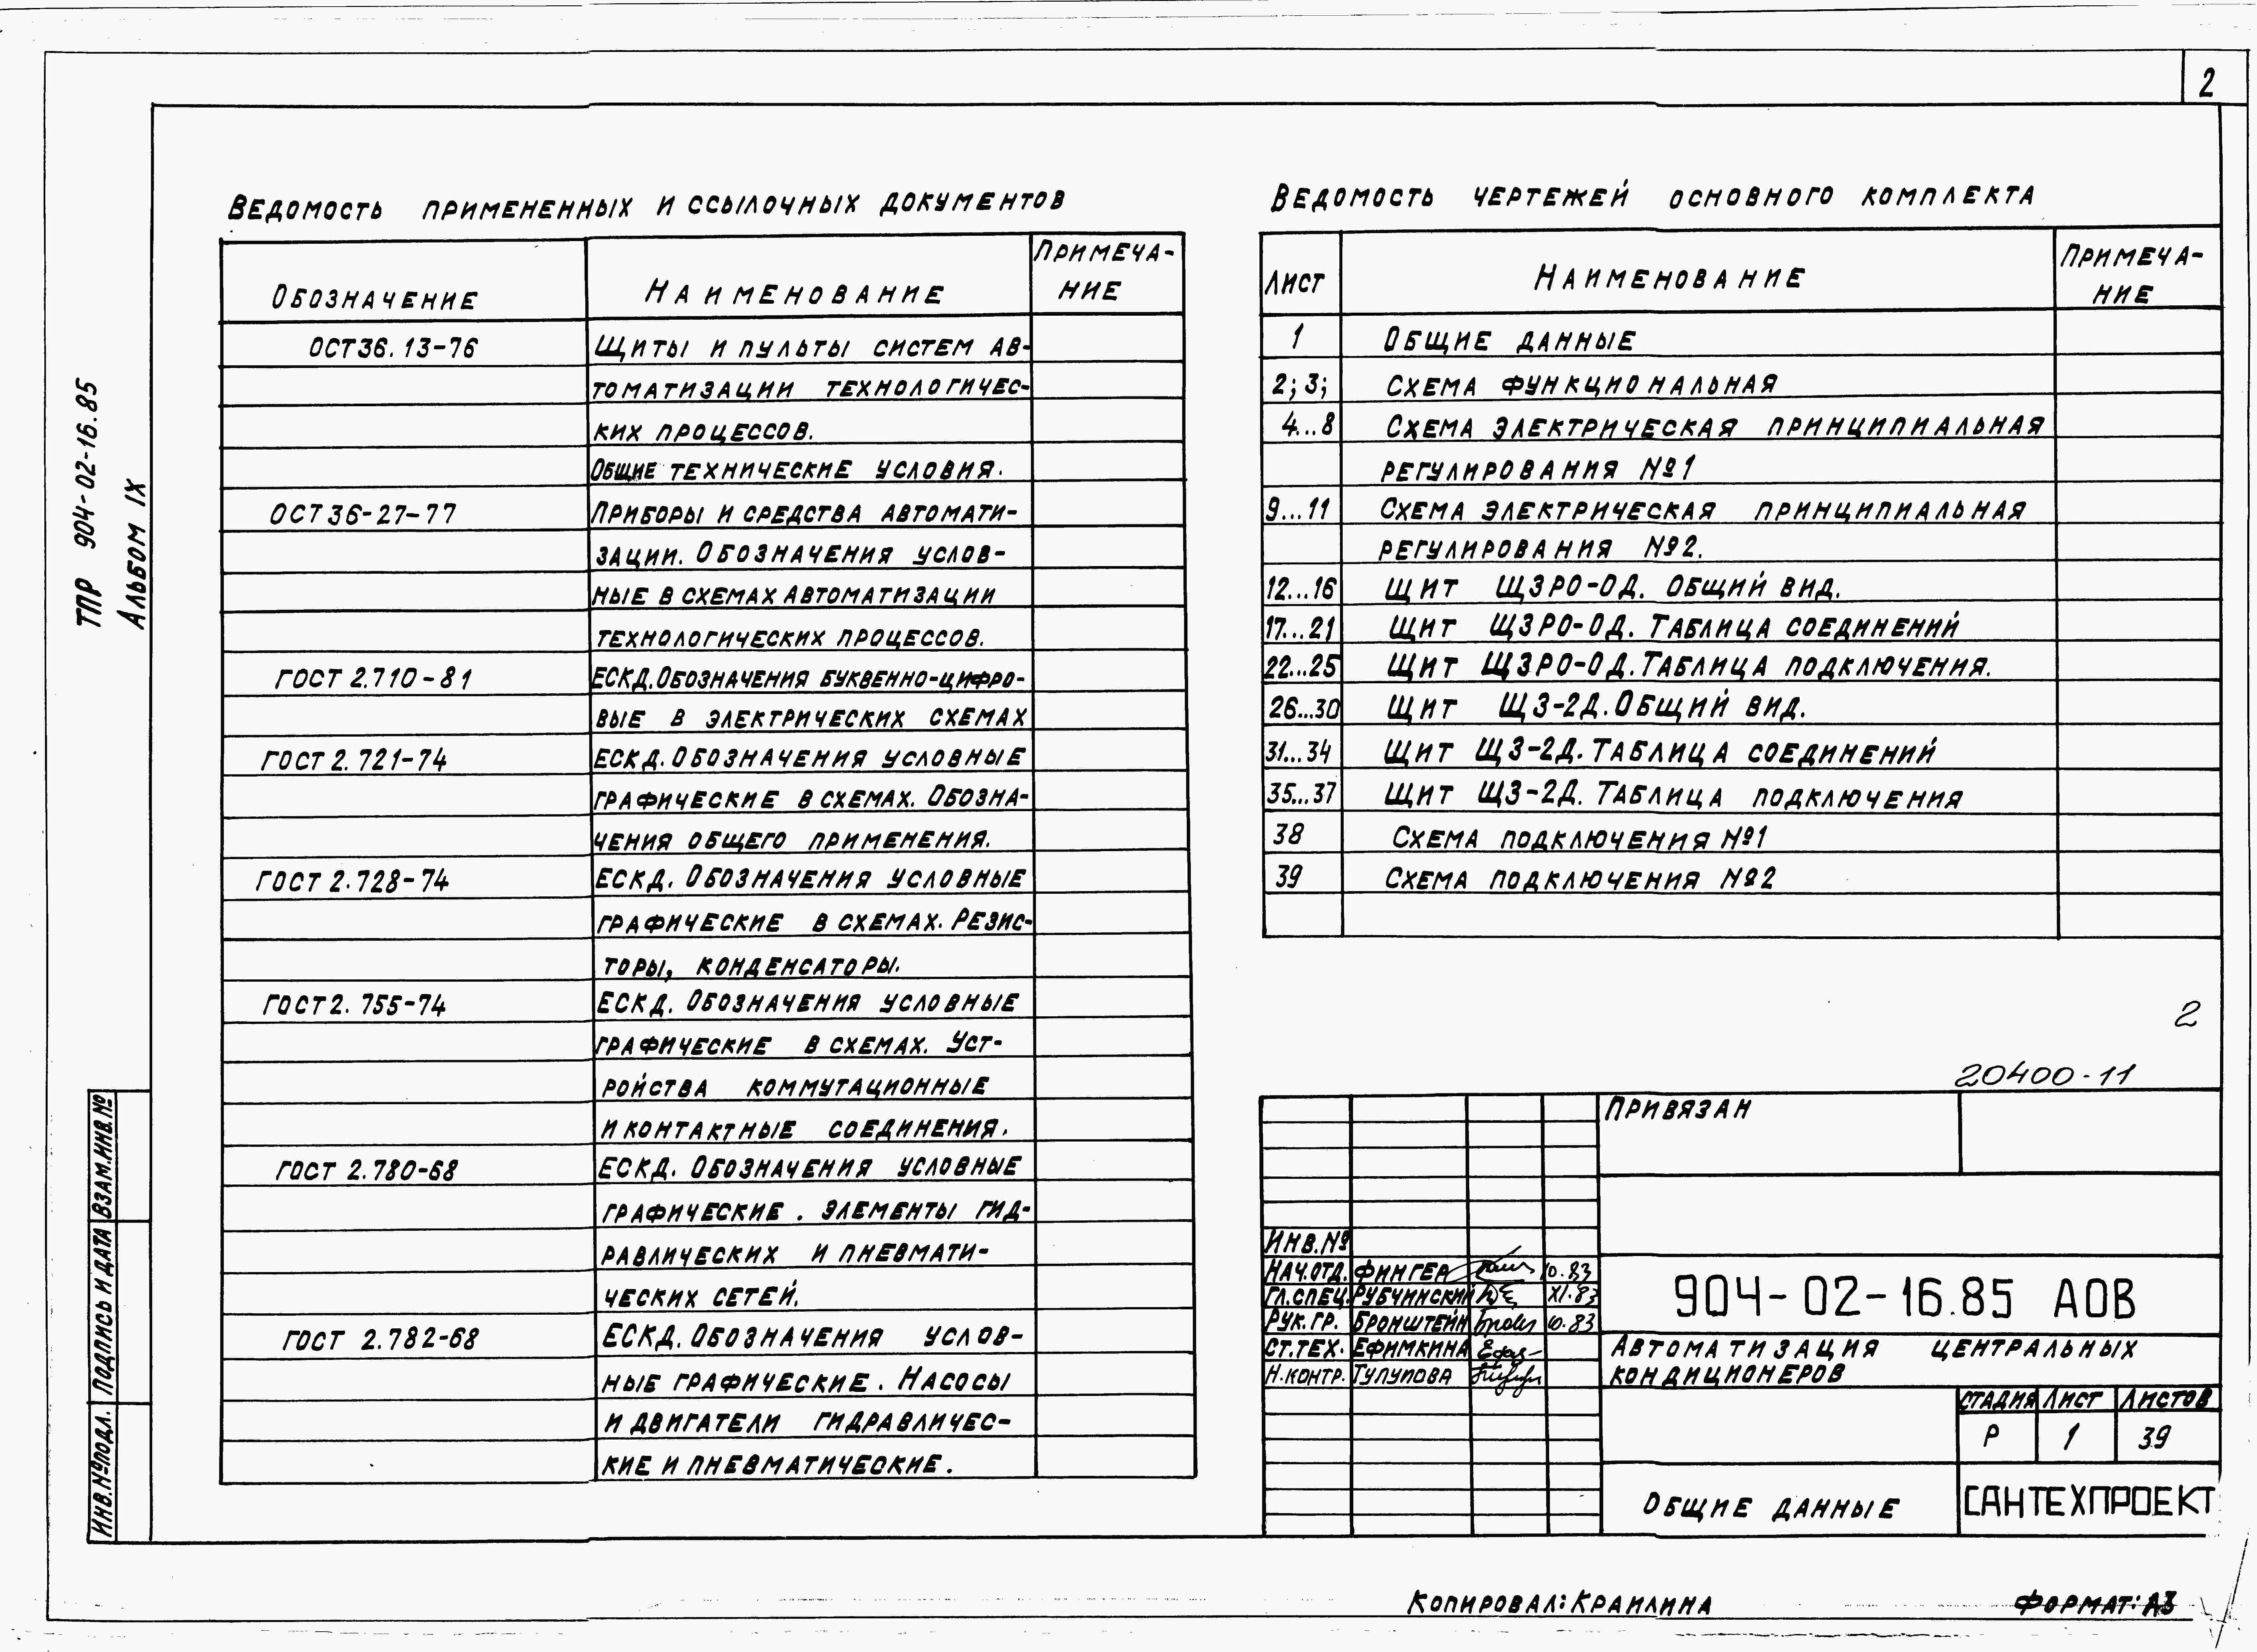 2
ТПР 904-02-16.85
Альбом IX
Ведомость примененных и ссылочных документов
Обозначение Наименование Примеча-
ние
ОСТ36.13-76 Щиты и пульты систем ав-
томатизации технологичес-
ких процессов.
Общие технические условия.
ОСТ 36-27-77 Приборы и средства автомати-
зации. Обозначения услов-
ные в схемах автоматизации
технологических процессов.
ГОСТ 2.710-81 ЕСКД. Обозначения буквенно-цифро-
вые в электрических схемах
ГОСТ 2.721-74 ЕСКД. Обозначения условные
графические в схемах. Обозна-
чения общего применения.
ГОСТ 2.728-74 ЕСКД. Обозначения условные
графические в схемах. Резис-
торы, конденсаторы.
ГОСТ 2.755-74 ЕСКД. Обозначения условные
графические в схемах. Уст-
ройства коммутационные
и контактные соединения.
ГОСТ 2.780-68 ЕСКД. Обозначения условные
графические. Элементы гид-
равлических и пневмати-
ческих сетей.
ГОСТ 2.782-68 ЕСКД. Обозначения услов-
ные графические. Насосы
и двигатели гидравличес-
кие и пневматические.
Ведомость чертежей основного комплекта
Лист Наименование Примеча-
ние
1 Общие данные
2; 3; Схема функциональная
4...8 Схема электрическая принципиальная
регулирования №1
9...11 Схема электрическая принципиальная
регулирования №2.
12...16 Щит ЩЗРО-ОД. Общий вид.
17...21 Щит ЩЗРО-ОД. Таблица соединений
22...25 Щит ЩЗРО-ОД. Таблица подключения.
26...30 Щит ЩЗ-2Д. Общий вид.
31...34 Щит ЩЗ-2Д. Таблица соединений
35...37 Щит ЩЗ-2Д. Таблица подключения
38 Схема подключения №1
39 Схема подключения №2
2
20400-11
Привязан
Инв.№
Нач.отд. Фингер 10.83
Гл.спец. Рубчинский XI.83
Рук.гр. Бронштейн 10.83
Ст.тех. Ефимкина
Н.контр. Тулупова
904-02-16.85 АОВ
Автоматизация центральных
кондиционеров
Стадия Лист Листов
Р 1 39
Общие данные
САНТЕХПРОЕКТ
Инв.№подл. Подпись и дата Взам.инв.№
Копировал: Краилина
Формат: А3